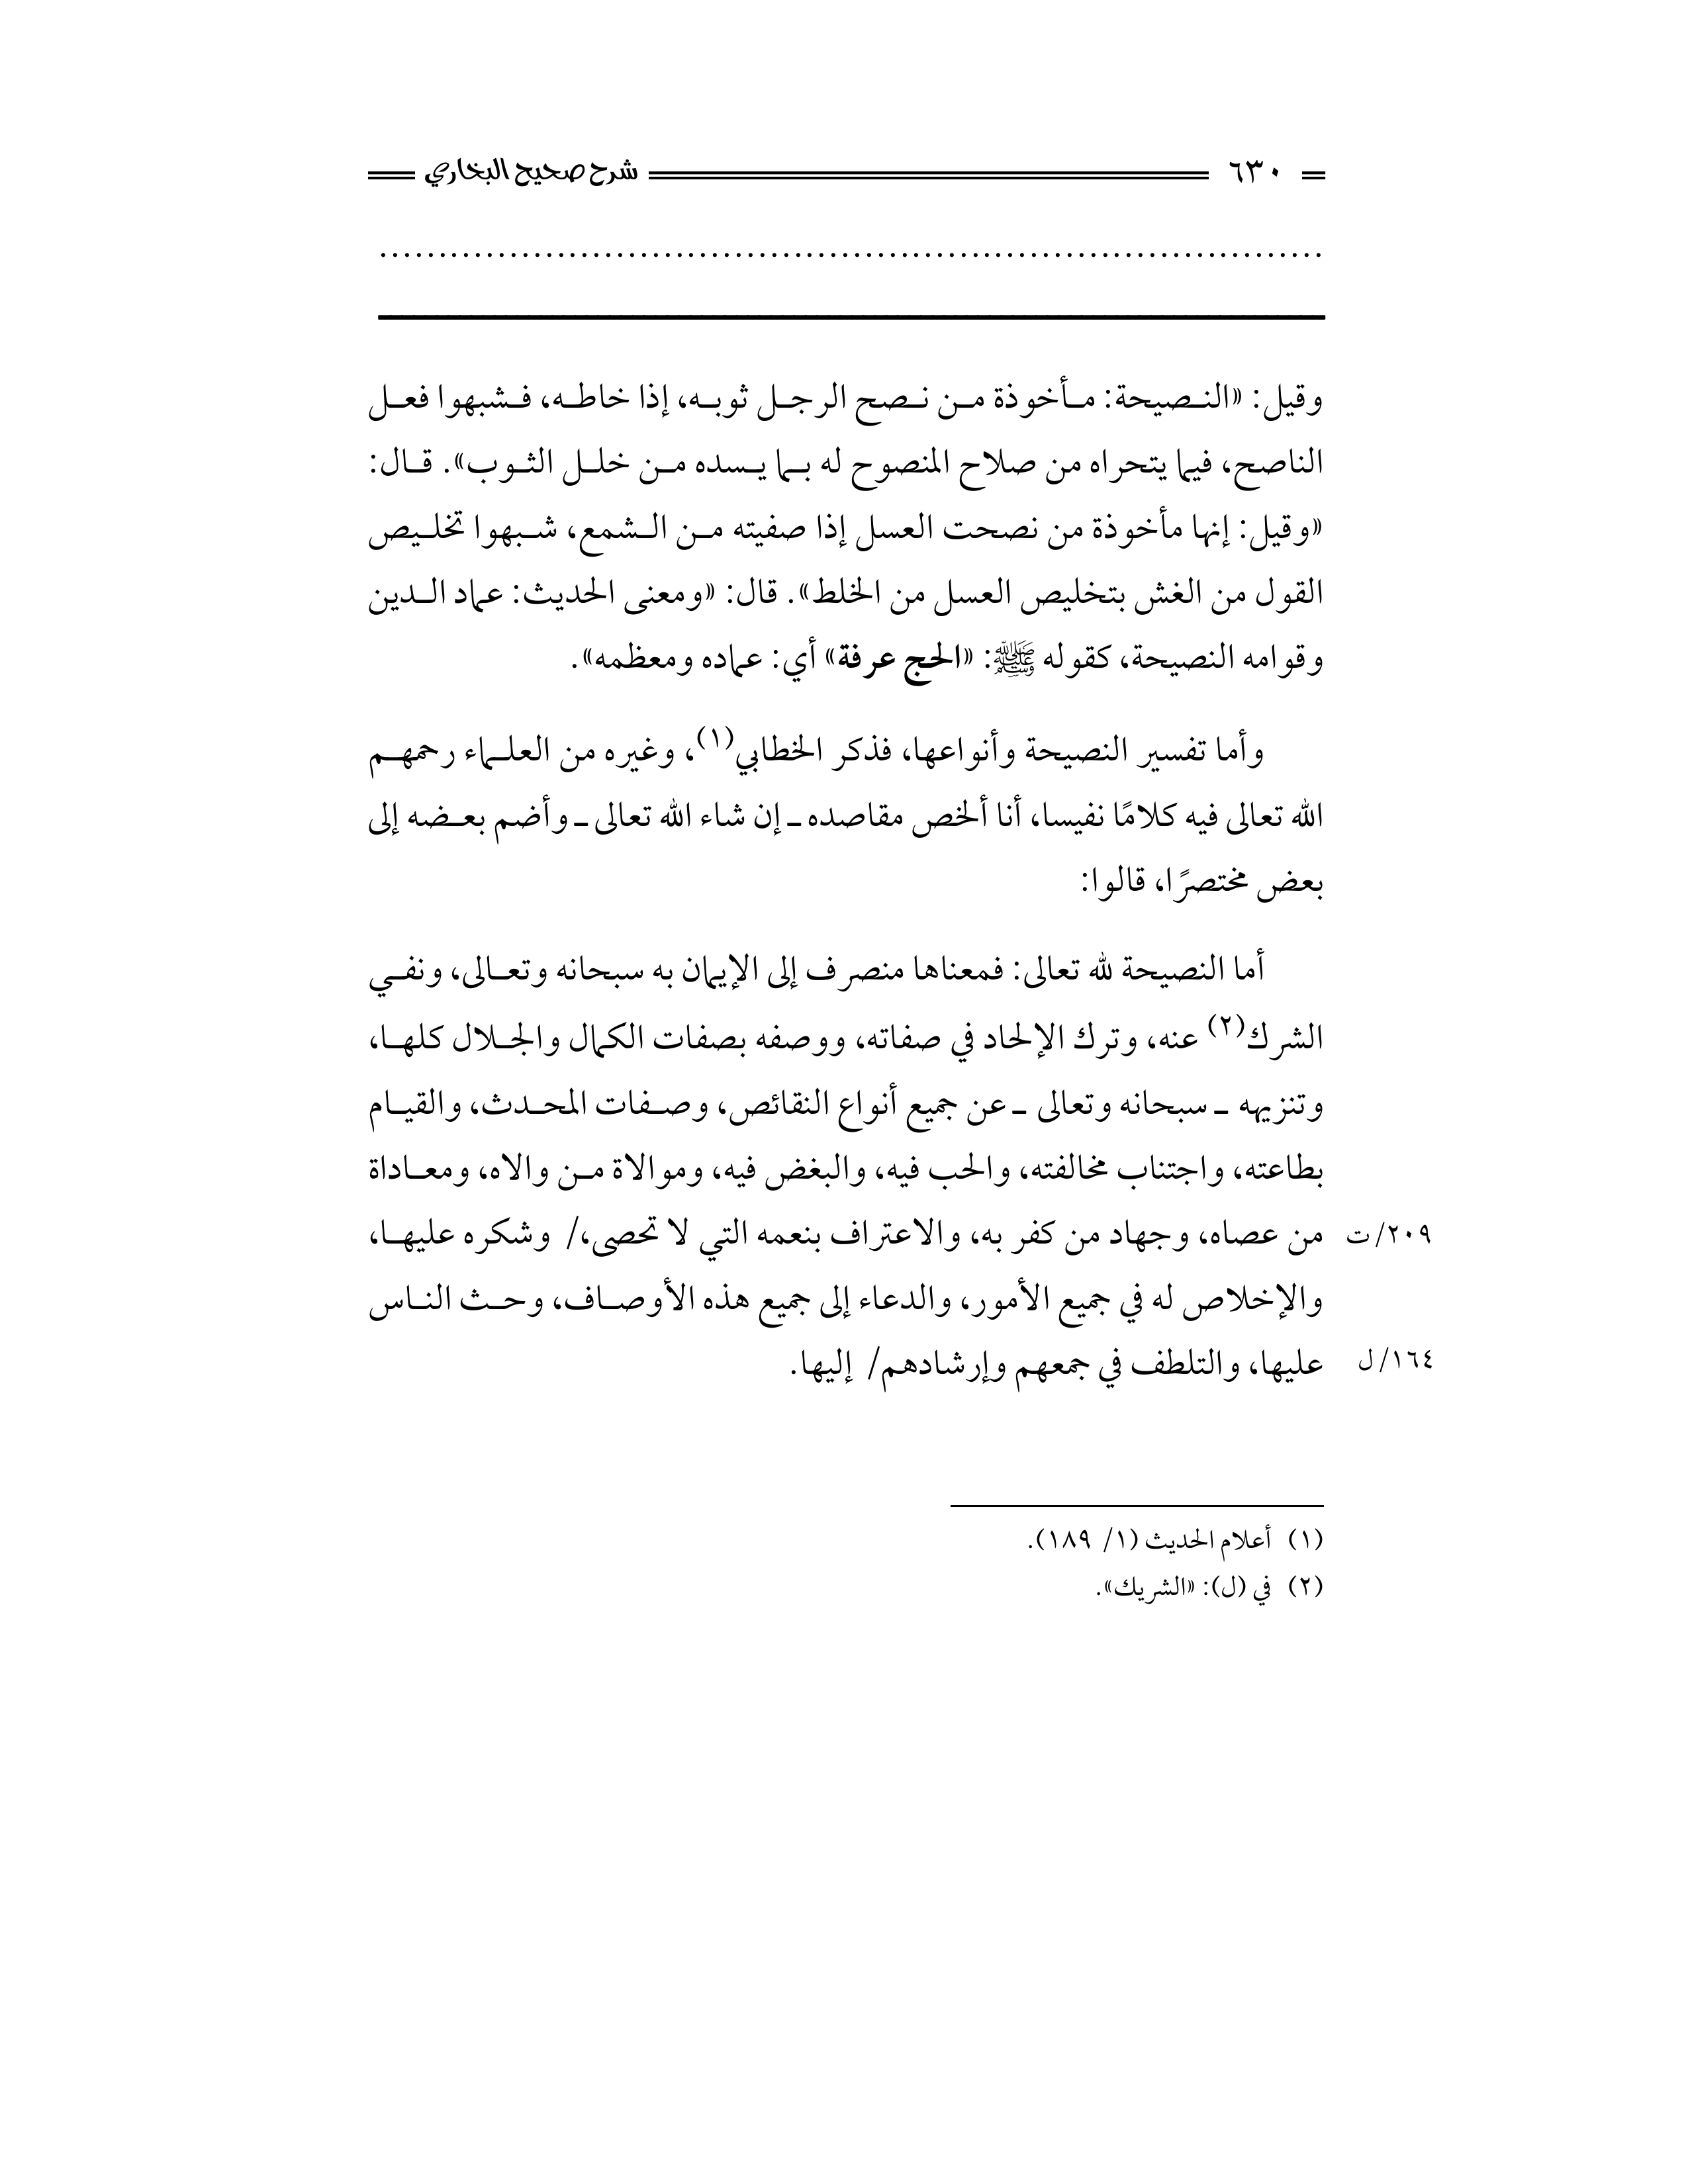 ٦٣٠ شرح صحيح البخاري
................................................................................
وقيل: «النصيحة: مأخوذة من نصح الرجل ثوبه، إذا خاطه، فشبهوا فعل
الناصح، فيما يتحراه من صلاح المنصوح له بما يسده من خلل الثوب». قال:
«وقيل: إنها مأخوذة من نصحت العسل إذا صفيته من الشمع، شبهوا تخليص
القول من الغش بتخليص العسل من الخلط». قال: «ومعنى الحديث: عماد الدين
وقوامه النصيحة، كقوله ﷺ: «الحج عرفة» أي: عماده ومعظمه».
وأما تفسير النصيحة وأنواعها، فذكر الخطابي(١)، وغيره من العلماء رحمهم
الله تعالى فيه كلامًا نفيسا، أنا ألخص مقاصده ـ إن شاء الله تعالى ـ وأضم بعضه إلى
بعض مختصرًا، قالوا:
أما النصيحة لله تعالى: فمعناها منصرف إلى الإيمان به سبحانه وتعالى، ونفي
الشرك(٢) عنه، وترك الإلحاد في صفاته، ووصفه بصفات الكمال والجلال كلها،
وتنزيهه ـ سبحانه وتعالى ـ عن جميع أنواع النقائص، وصفات المحدث، والقيام
بطاعته، واجتناب مخالفته، والحب فيه، والبغض فيه، وموالاة من والاه، ومعاداة
٢٠٩/ ت من عصاه، وجهاد من كفر به، والاعتراف بنعمه التي لا تحصى،/ وشكره عليها،
والإخلاص له في جميع الأمور، والدعاء إلى جميع هذه الأوصاف، وحث الناس
١٦٤/ ل عليها، والتلطف في جمعهم وإرشادهم/ إليها.
(١) أعلام الحديث (١/ ١٨٩).
(٢) في (ل): «الشريك».